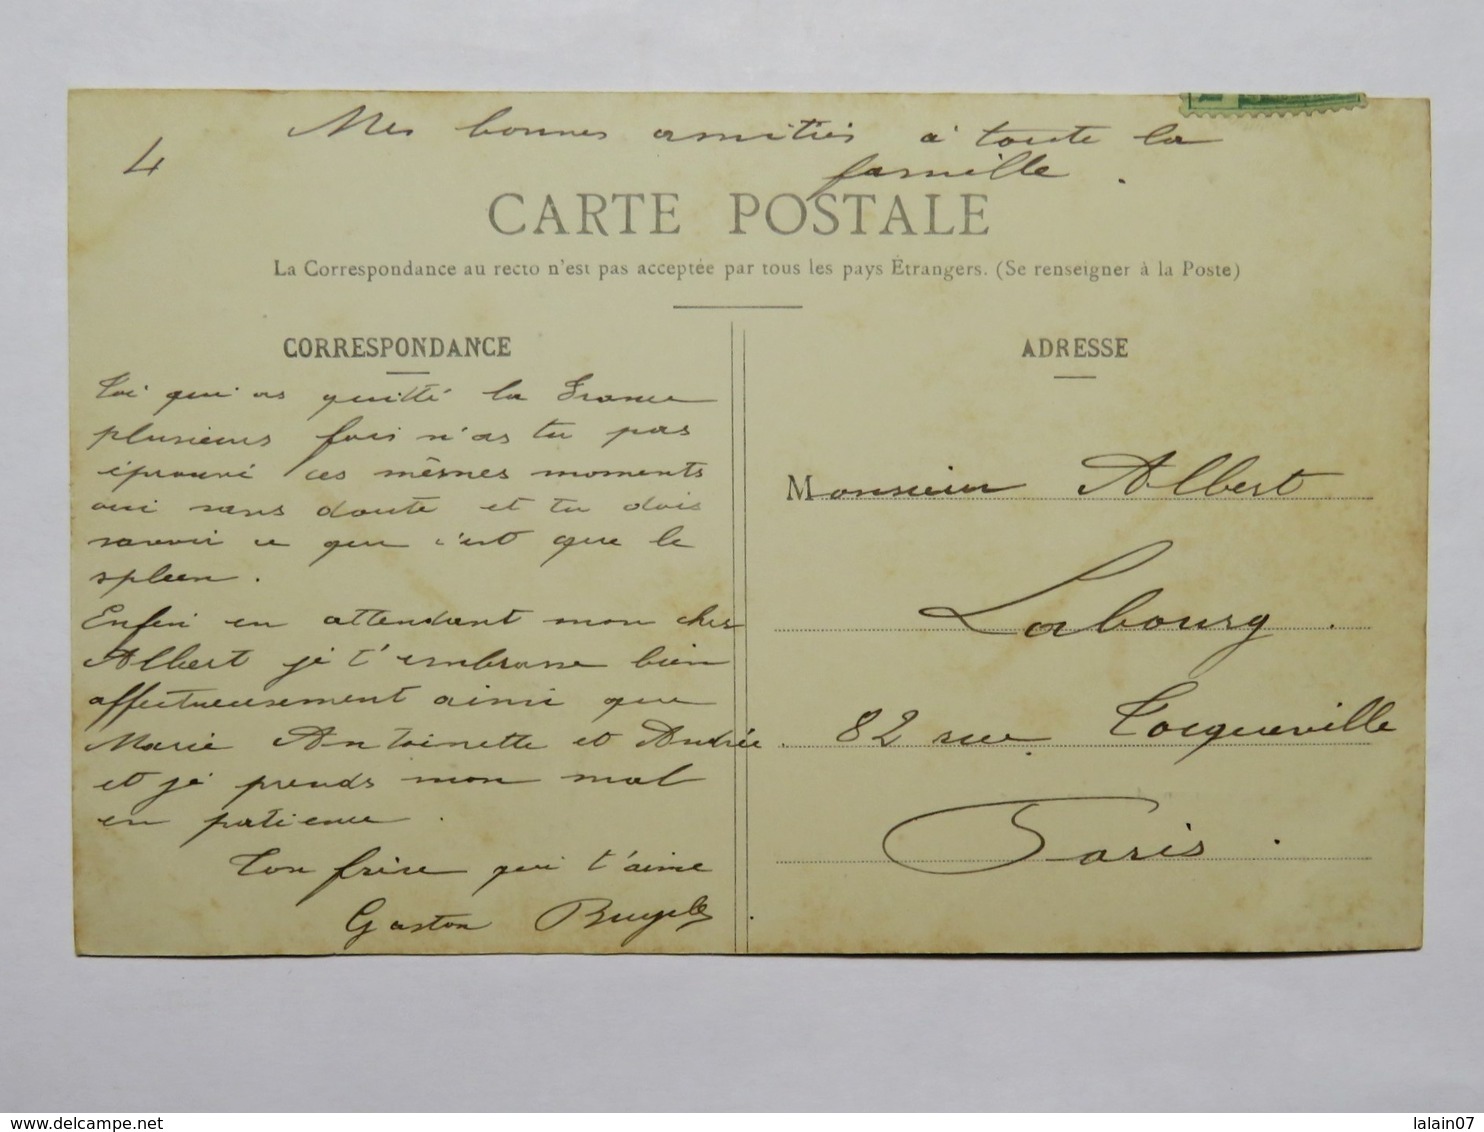 4
Mes bonnes amitiés à toute la
famille.
CARTE POSTALE
La Correspondance au recto n'est pas acceptée par tous les pays Étrangers. (Se renseigner à la Poste)
CORRESPONDANCE
Toi qui as quitté la France
plusieurs fois n'as tu pas
éprouvé ces mêmes moments
oui sans doute et tu dois
savoir ce que c'est que le
spleen.
Enfin en attendant mon cher
Albert je t'embrasse bien
affectueusement ainsi que
Marie Antoinette et Andrée.
et je prends mon mal
en patience.
Ton frère qui t'aime
Gaston
ADRESSE
Monsieur Albert
Labourg.
82 rue Tocqueville
Paris.
delcampe.net
lalain07